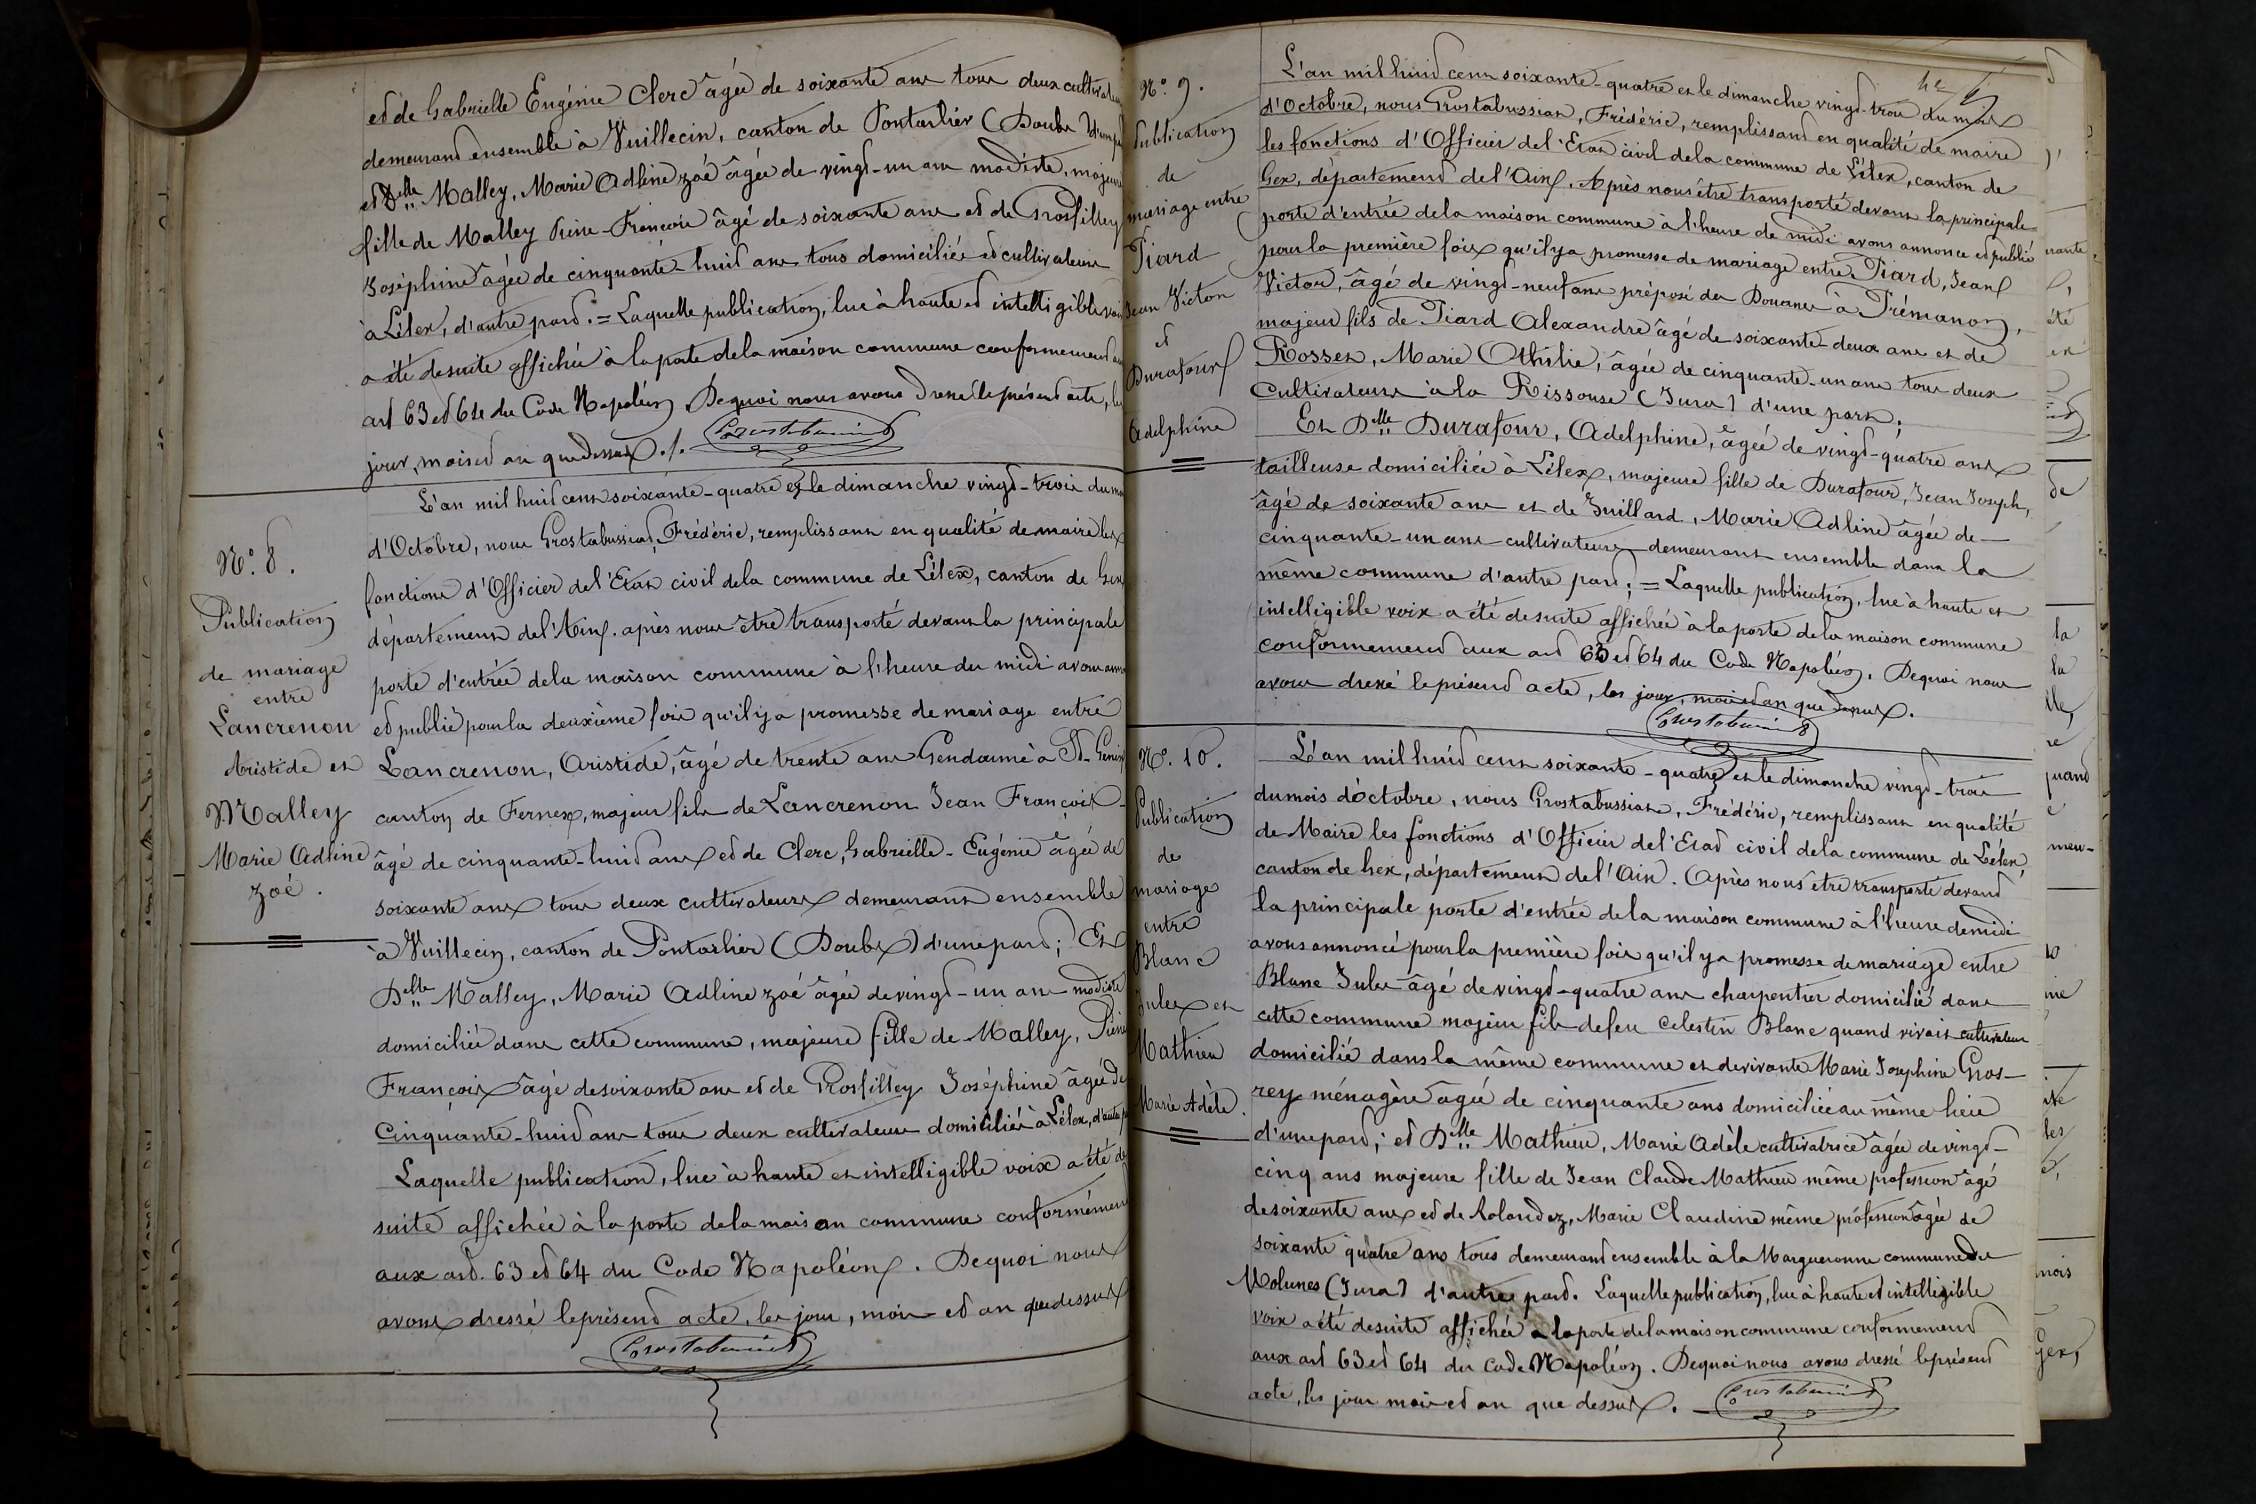 et de Gabrielle Eugénie Clerc âgée de soixante ans tous deux cultivateurs
demeurant ensemble à Vuillecin, canton de Pontarlier (Doubs) d'une part
et Delle Malley, Marie Adline Zoé âgée de vingt-un ans modiste, majeure
fille de Malley Pierre-François âgé de soixante ans et de Grosfilley
Joséphine âgée de cinquante-huit ans tous domiciliés et cultivateurs
à Lélex, d'autre part. = Laquelle publication, lue à haute et intelligible voix
a été de suite affichée à la porte de la maison commune conformement aux
art 63 et 64 du Code Napoléon. De quoi nous avons dressé le présent acte, les
jour, mois et an que dessus ./.
Grostabussiat
N° 8.
Publication
de mariage
entre
Lancrenon
Aristide et
Malley
Marie Adline
Zoé.
L'an mil huit cent soixante-quatre et le dimanche vingt-trois du mois
d'Octobre, nous Grostabussiat, Frédéric, remplissant en qualité de maire les
fonctions d'Officier de l'Etat civil de la commune de Lélex, canton de Gex
département de l'Ain. après nous être transporté devant la principale
porte d'entrée de la maison commune à l'heure du midi avons annoncé
et publié pour la deuxième fois qu'il y a promesse de mariage entre
Lancrenon, Aristide, âgé de trente ans Gendarme à St-Genix
canton de Fernex, majeur fils de Lancrenon Jean François
âgé de cinquante-huit ans et de Clerc, Gabrielle-Eugénie âgée de
soixante ans tous deux cultivateurs demeurant ensemble
à Vuillecin, canton de Pontarlier (Doubs) d'une part; Et
Delle Malley, Marie Adline Zoé âgée de vingt-un ans modiste
domiciliée dans cette commune, majeure fille de Malley, Pierre
François âgé de soixante ans et de Grosfilley Joséphine âgée de
cinquante-huit ans tous deux cultivateurs domiciliés à Lélex, d'autre part
Laquelle publication, lue à haute et intelligible voix a été de
suite affichée à la porte de la maison commune conformément
aux art. 63 et 64 du Code Napoléon. De quoi nous
avons dressé le présent acte, les jour, mois et an que dessus
Grostabussiat
N° 9.
Publication
de
mariage entre
Piard
Jean Victor
et
Durafour
Adelphine
L'an mil huit cent soixante-quatre et le dimanche vingt-trois du mois
d'Octobre, nous Grostabussiat, Frédéric, remplissant en qualité de maire
les fonctions d'Officier de l'Etat civil de la commune de Lélex, canton de
Gex, département de l'Ain. Après nous être transporté devant la principale
porte d'entrée de la maison commune à l'heure de midi avons annoncé et publié
pour la première fois qu'il y a promesse de mariage entre Piard, Jean
Victor, âgé de vingt-neuf ans préposé des Douanes à Prémanon,
majeur fils de Piard Alexandre âgé de soixante-deux ans et de
Rosset, Marie Othilie, âgée de cinquante-un ans tous deux
cultivateurs à la Rissouse (Jura) d'une part;
Et Delle Durafour, Adelphine, âgée de vingt-quatre ans
tailleuse domiciliée à Lélex, majeure fille de Durafour, Jean Joseph,
âgé de soixante ans et de Juillard, Marie Adline âgée de
cinquante-un ans cultivateurs demeurant ensemble dans la
même commune d'autre part; = Laquelle publication, lue à haute et
intelligible voix a été de suite affichée à la porte de la maison commune
conformement aux art 63 et 64 du Code Napoléon. De quoi nous
avons dressé le présent acte, les jour, mois et an que dessus.
Grostabussiat
N° 10.
Publication
de
mariage
entre
Blanc
Jules et
Mathieu
Marie Adèle.
L'an mil huit cent soixante-quatre et le dimanche vingt-trois
du mois d'octobre, nous Grostabussiat, Frédéric, remplissant en qualité
de Maire les fonctions d'Officier de l'Etat civil de la commune de Lélex,
canton de Gex, département de l'Ain. Après nous être transporté devant
la principale porte d'entrée de la maison commune à l'heure de midi
avons annoncé pour la première fois qu'il y a promesse de mariage entre
Blanc Jules âgé de vingt-quatre ans charpentier domicilié dans
cette commune majeur fils de feu Celestin Blanc quand vivait cultivateur
domicilié dans la même commune et de vivante Marie Josephine Gros-
rey ménagère âgée de cinquante ans domiciliée au même lieu
d'une part; et Delle Mathieu, Marie Adèle cultivatrice âgée de vingt-
cinq ans majeure fille de Jean Claude Mathieu même profession âgé
de soixante ans et de Rolandez, Marie Claudine même profession âgée de
soixante quatre ans tous demeurant ensemble à la Margueronne commune des
Molunes (Jura) d'autre part. Laquelle publication, lue à haute et intelligible
voix a été de suite affichée à la porte de la maison commune conformement
aux art 63 et 64 du Code Napoléon. De quoi nous avons dressé le présent
acte, les jour mois et an que dessus.
Grostabussiat